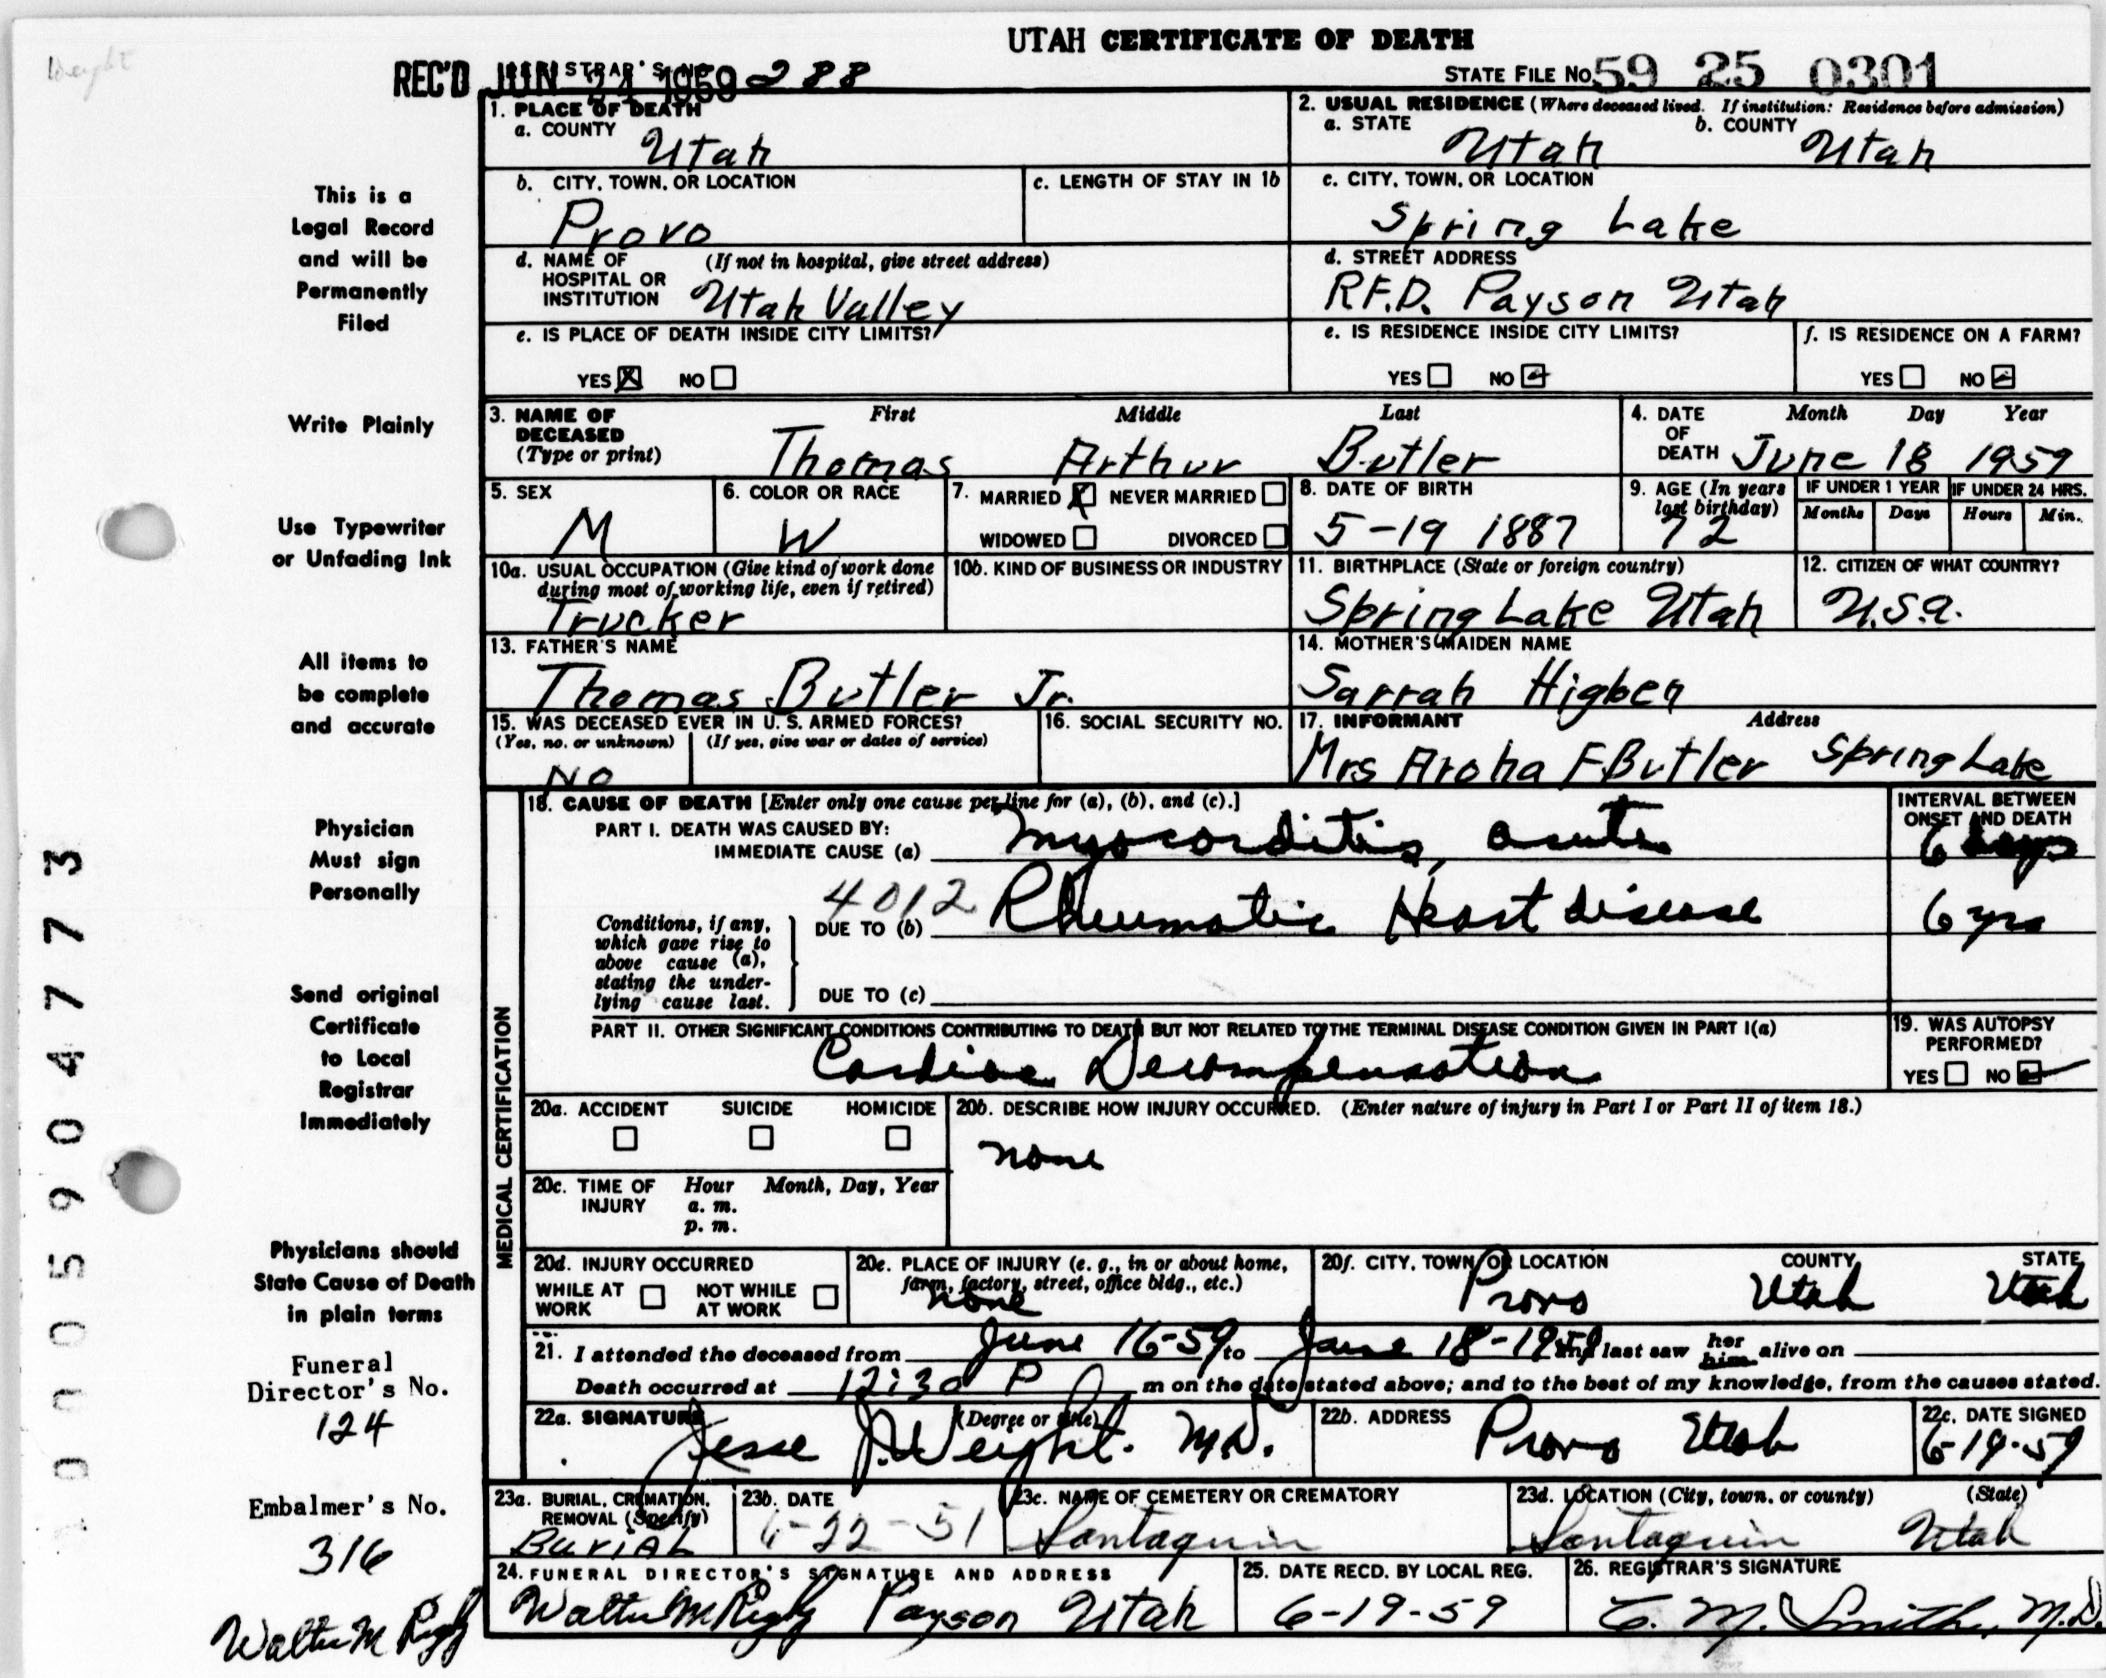 Weight
UTAH CERTIFICATE OF DEATH
REC'D JUN 24 1959 288
STATE FILE NO. 59 25 0301
1. PLACE OF DEATH
a. COUNTY Utah
2. USUAL RESIDENCE (Where deceased lived. If institution: Residence before admission)
a. STATE Utah b. COUNTY Utah
b. CITY, TOWN, OR LOCATION Provo
c. LENGTH OF STAY IN 1b
c. CITY, TOWN, OR LOCATION Spring Lake
d. NAME OF HOSPITAL OR INSTITUTION (If not in hospital, give street address) Utah Valley
d. STREET ADDRESS R.F.D. Payson Utah
e. IS PLACE OF DEATH INSIDE CITY LIMITS?
YES NO
e. IS RESIDENCE INSIDE CITY LIMITS?
YES NO
f. IS RESIDENCE ON A FARM?
YES NO
3. NAME OF DECEASED (Type or print)
First Middle Last
Thomas Arthur Butler
4. DATE OF DEATH Month Day Year
June 18 1959
5. SEX M
6. COLOR OR RACE W
7. MARRIED NEVER MARRIED
WIDOWED DIVORCED
8. DATE OF BIRTH 5-19 1887
9. AGE (In years last birthday) 72
IF UNDER 1 YEAR Months Days
IF UNDER 24 HRS. Hours Min.
10a. USUAL OCCUPATION (Give kind of work done during most of working life, even if retired)
Trucker
10b. KIND OF BUSINESS OR INDUSTRY
11. BIRTHPLACE (State or foreign country)
Spring Lake Utah
12. CITIZEN OF WHAT COUNTRY?
U.S.a.
13. FATHER'S NAME
Thomas Butler Jr.
14. MOTHER'S MAIDEN NAME
Sarrah Higben
15. WAS DECEASED EVER IN U. S. ARMED FORCES?
(Yes, no, or unknown) (If yes, give war or dates of service)
No
16. SOCIAL SECURITY NO.
17. INFORMANT Address
Mrs Aroha F Butler Spring Lake
MEDICAL CERTIFICATION
18. CAUSE OF DEATH [Enter only one cause per line for (a), (b), and (c).]
INTERVAL BETWEEN ONSET AND DEATH
PART I. DEATH WAS CAUSED BY:
IMMEDIATE CAUSE (a) myocarditis, acute 6 days
4012
Conditions, if any, which gave rise to above cause (a), stating the underlying cause last.
DUE TO (b) Rheumatic Heart disease 6 yrs
DUE TO (c)
PART II. OTHER SIGNIFICANT CONDITIONS CONTRIBUTING TO DEATH BUT NOT RELATED TO THE TERMINAL DISEASE CONDITION GIVEN IN PART I(a)
Cardiac Decompensation
19. WAS AUTOPSY PERFORMED?
YES NO
20a. ACCIDENT SUICIDE HOMICIDE
20b. DESCRIBE HOW INJURY OCCURRED. (Enter nature of injury in Part I or Part II of item 18.)
none
20c. TIME OF INJURY Hour a. m. p. m. Month, Day, Year
20d. INJURY OCCURRED
WHILE AT WORK NOT WHILE AT WORK
20e. PLACE OF INJURY (e. g., in or about home, farm, factory, street, office bldg., etc.)
none
20f. CITY, TOWN, OR LOCATION COUNTY STATE
Provo Utah Utah
21. I attended the deceased from June 16-59 to June 18-1959 and last saw her him alive on
Death occurred at 12:30 P m on the date stated above; and to the best of my knowledge, from the causes stated.
22a. SIGNATURE (Degree or title)
Jesse J. Weight. M.D.
22b. ADDRESS
Provo Utah
22c. DATE SIGNED
6-19-59
23a. BURIAL, CREMATION, REMOVAL (Specify)
Burial
23b. DATE
6-22-51
23c. NAME OF CEMETERY OR CREMATORY
Santaquin
23d. LOCATION (City, town, or county) (State)
Santaquin Utah
24. FUNERAL DIRECTOR'S SIGNATURE AND ADDRESS
Walter M Rigby Payson Utah
25. DATE RECD. BY LOCAL REG.
6-19-59
26. REGISTRAR'S SIGNATURE
C. M. Smith, M.D.
This is a
Legal Record
and will be
Permanently
Filed
Write Plainly
Use Typewriter
or Unfading Ink
All items to
be complete
and accurate
Physician
Must sign
Personally
Send original
Certificate
to Local
Registrar
Immediately
Physicians should
State Cause of Death
in plain terms
Funeral
Director's No.
124
Embalmer's No.
316
Walter M Rigby
0005904773